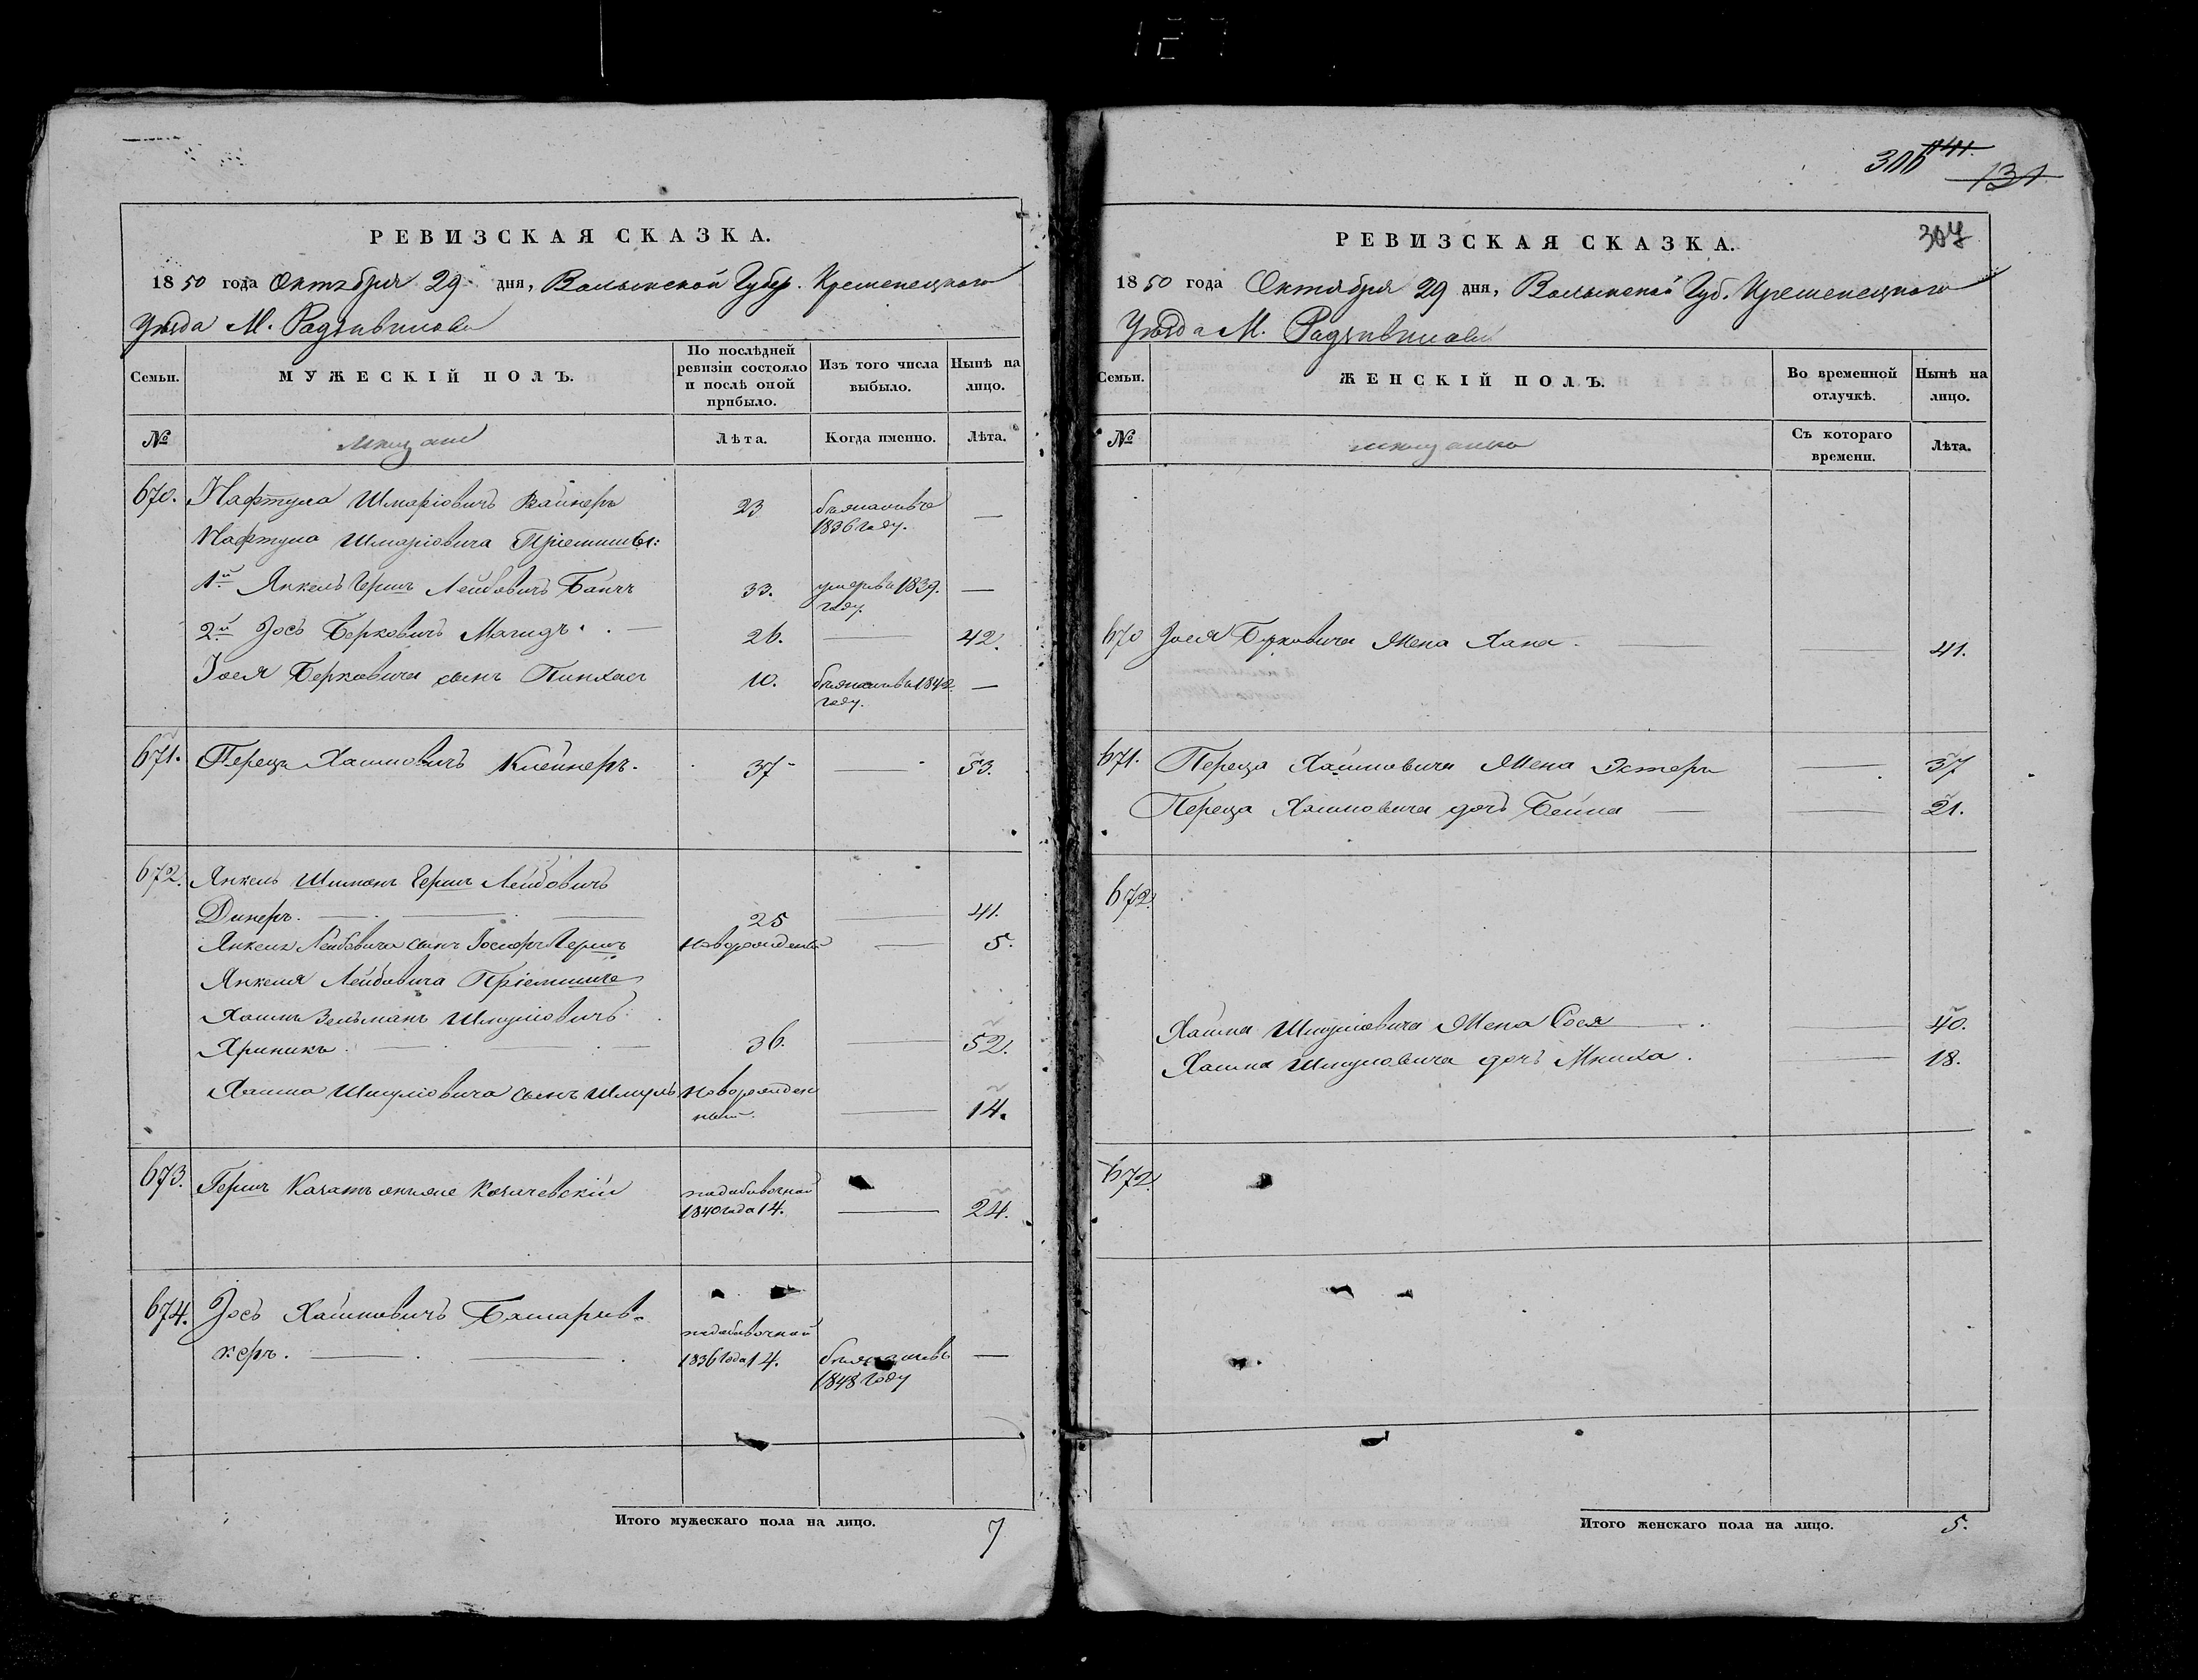 РЕВИЗСКАЯ СКАЗКА.
1850 года Октября 29 дня, Волынской Губер. Кременецкого
Уѣзда М. Радзивилова
Семьи.
МУЖЕСКІЙ ПОЛЪ.
По послѣдней ревизіи состояло и послѣ оной прибыло.
Изъ того числа выбыло.
Нынѣ на лицо.
№
мещане
Лѣта.
Когда именно.
Лѣта.
670. Нафтула Шмаріовичъ Вайнеръ 23 1836 году. —
Нафтула Шмаріовича Пріемыши:
1й Янкель Гершъ Лейбовичъ 33. умеръ въ 1839. году. —
2й Іось Берковичъ Магидъ. 26. — 42.
Іося Берковича сынъ Пинхасъ 10. году. —
671. Перецъ Хаимовичъ Клейнеръ. 37 — 53.
672. Янкель Шиманъ Гершъ Лейбовичъ
Динеръ. 25 — 41.
Янкеля Лейбовича сынъ Іосифъ Гершъ новорожденный — 5.
Янкеля Лейбовича Пріемышъ
Хаимъ Зельманъ Шмуліовичъ
Хриникъ. 36. — 52.
Хаима Шмуліовича сынъ Шмуль новорожденный. — 14.
673. Гершъ 1840 года 14. — 24.
674. Іось Хаимовичъ
керъ. 1836 года 14. 1848 году —
Итого мужескаго пола на лицо. 7
306
131
307
РЕВИЗСКАЯ СКАЗКА.
1850 года Октября 29 дня, Волынской Губ. Кременецкого
Уѣзда М. Радзивилова
Семьи.
ЖЕНСКІЙ ПОЛЪ.
Во временной отлучкѣ.
Нынѣ на лицо.
№
мещанки
Съ котораго времени.
Лѣта.
670 Іося Берковича Жена Хана. — 41.
671. Переца Хаимовича Жена Эстеръ — 37
Переца Хаимовича дочь Бейла — 21.
672.
Хаима Шмуліовича Жена Сося — 40.
Хаима Шмуловича дочь — 18.
672.
Итого женскаго пола на лицо. 5.